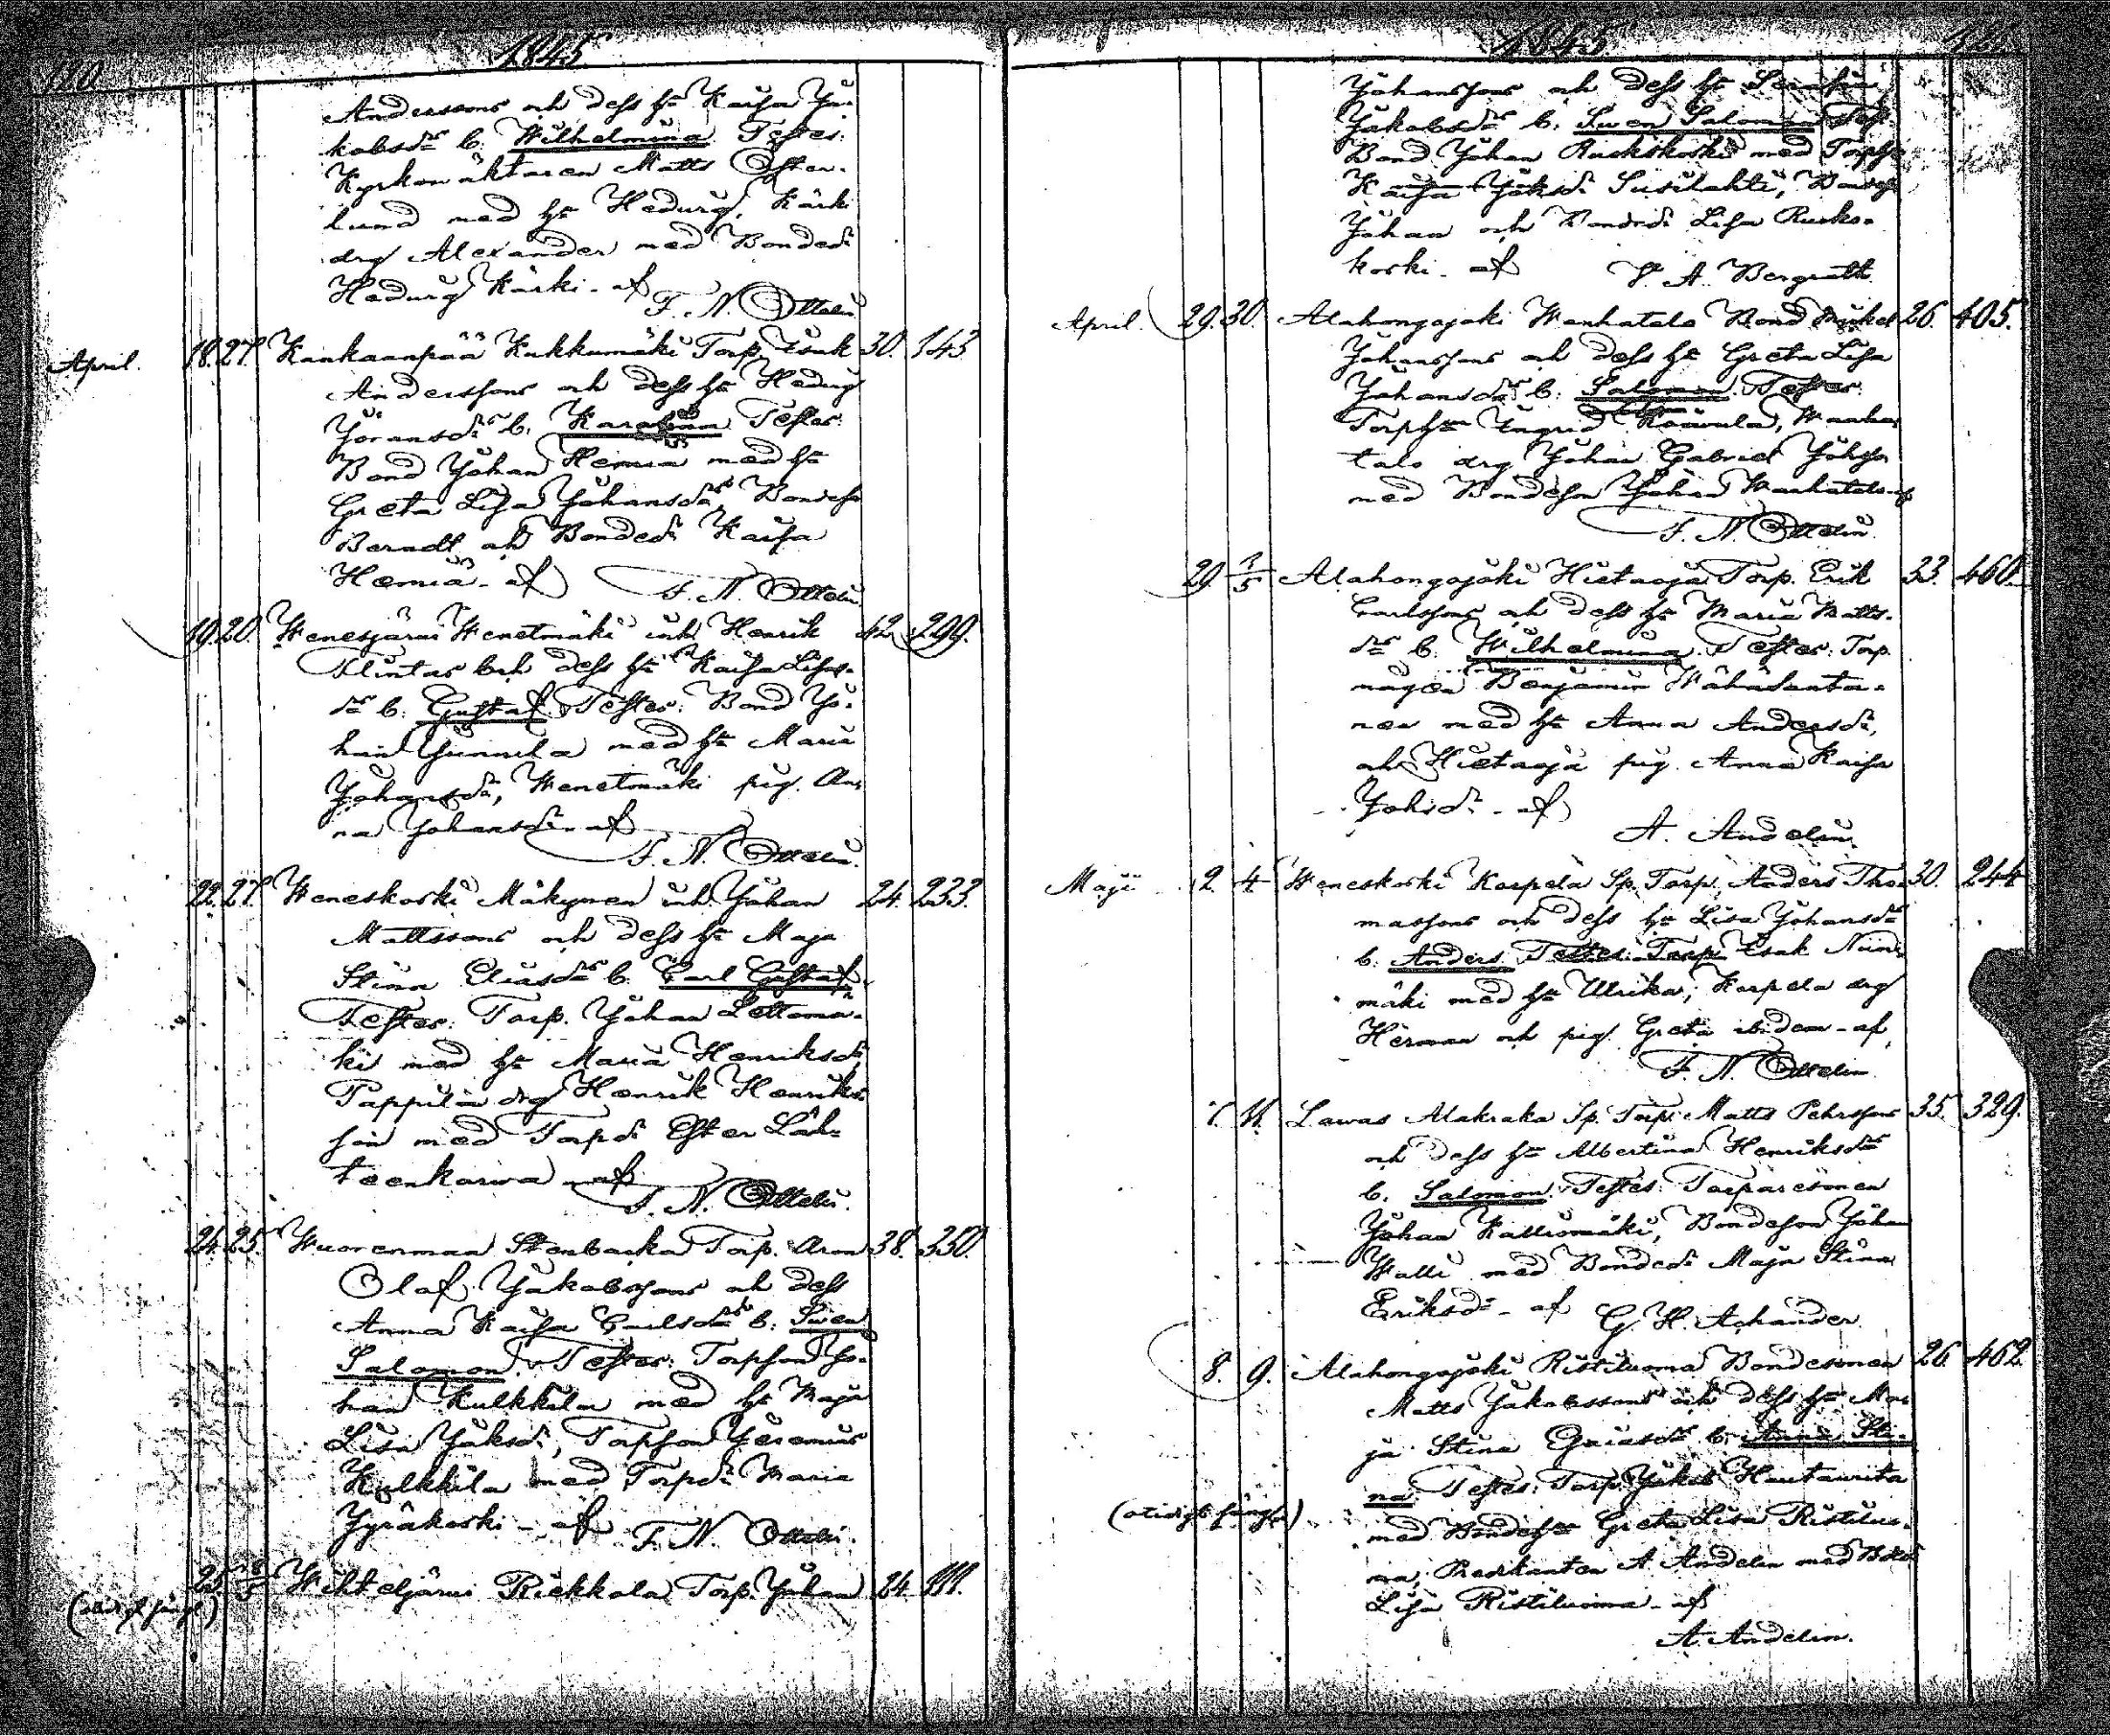 120
1845
Anderssons och dess hu Kaisa Ja-
kobsdr b. Wilhelmina Testes:
Kyrkowäktaren Matts Öster-
lund med hu Hedwig, Kärki
drg Alexander med Bonded:
Hedwig Kärki - af
F. N. Ottelin
April. 18. 27. Kankaanpää Kukkumäki Torp. Isak 30. 143
Anderssons och dess hu Hedwig
Göransdr b. Testes:
Bond Johan Hemiä med hu
Greta Lisa Johansdr, Bondeso
Berndt och Bonded: Kaisa
Hemiä - af F. N. Ottelin
19. 20. Wenesjärwi Wenetmäki inh. Henrik 42. 299.
Flintas och dess hu Kaisa
dr b. Gustaf Testes: Bond Jo-
han med hu Maria
Johansd:, Wenetmäki pig. An-
na Johansdr - af
F. N. Ottelin
22. 27. Weneskoski Mäkynen inh. Johan 24. 233.
Mattssons och dess hu Maja
Stina Eliasdr b. Carl Gustaf
Testes: Torp. Johan Lettomä-
ki med hu Maria Henriksdr,
Pappila drg Henrik Henriks-
son med Torpd: Ester Läh-
teenkorwa - af
F. N. Ottelin
24. 25. Wuorenmaa Stenbacka Torp. Aron 38. 350.
Olof Jakobssons och dess
Anna Kaisa Carlsdr b. Swen
Salomon. Testes: Torpson Jo-
han Kulkkila med hu Maja
Lisa Jaksd:, Torpson Jeremias
Kulkkila med Torpd: Maria
Jyräkoski - af F. N. Ottelin
25. Wihteljärwi Riekkola Torp. Johan 24. 111.
1845
121
Johanssons och dess hu
Jakobsdr b. Swen Salomon Test:
Bond Johan Ruokokoski med
Kaisa Jaksd: Susilahti,
Johan och Bonded: Lisa Ruoko-
koski - af A. Bergroth
April. 29. 30. Alahongajoki Wanhatalo Bond Mickel 26. 405.
Johanssons och dess hu Greta Lisa
Johansdr b. Salomon Testes:
Torphu Ingrid Koiwula, Wanha-
talo drg Johan Gabriel
med Bondeson Johan Wanhatalo - af
F. N. Ottelin
29. Alahongajoki Hietaoja Torp. Erik 33. 460.
Carlssons och dess hu Maria Matts-
dr b. Wilhelmina Testes: Torp.
mågen Benjamin Wähäsanta-
nen med hu Anna Andersd:,
och Hietaoja pig. Anna Kaisa
Johsd: - af
A. Andelin.
Maji 2. 4. Weneskoski Korpela Sp. Torp. Anders Tho- 30. 244
massons och dess hu Lisa Johansdr
b. Anders Testes: Torp. Isak Niini-
mäki med hu Ulrika, Korpela drg
Herman och pig. Greta ibidem - af
F. N. Ottelin
7. 11. Lawas Alakraka Sp. Torp: Matts Pehrssons 35. 329.
och dess hu Albertina Henriksdr
b. Salomon Testes: Torparesonen
Johan Kalliomäki, Bondeson Johan
Walli med Bonded: Maja Stina
Eriksd: - af G. H. Achander.
8. 9. Alahongajoki Ristiluoma Bondesonen 26. 462.
Matts Jakobssons och dess hu Ma-
ja Stina b. Anna Sti-
na Testes: Torp. Jakob Hautaviita
med Bondehu Greta Lisa Ristiluo-
ma, Predikanten A. Andelin med
Lisa Ristiluoma - af
A. Andelin.